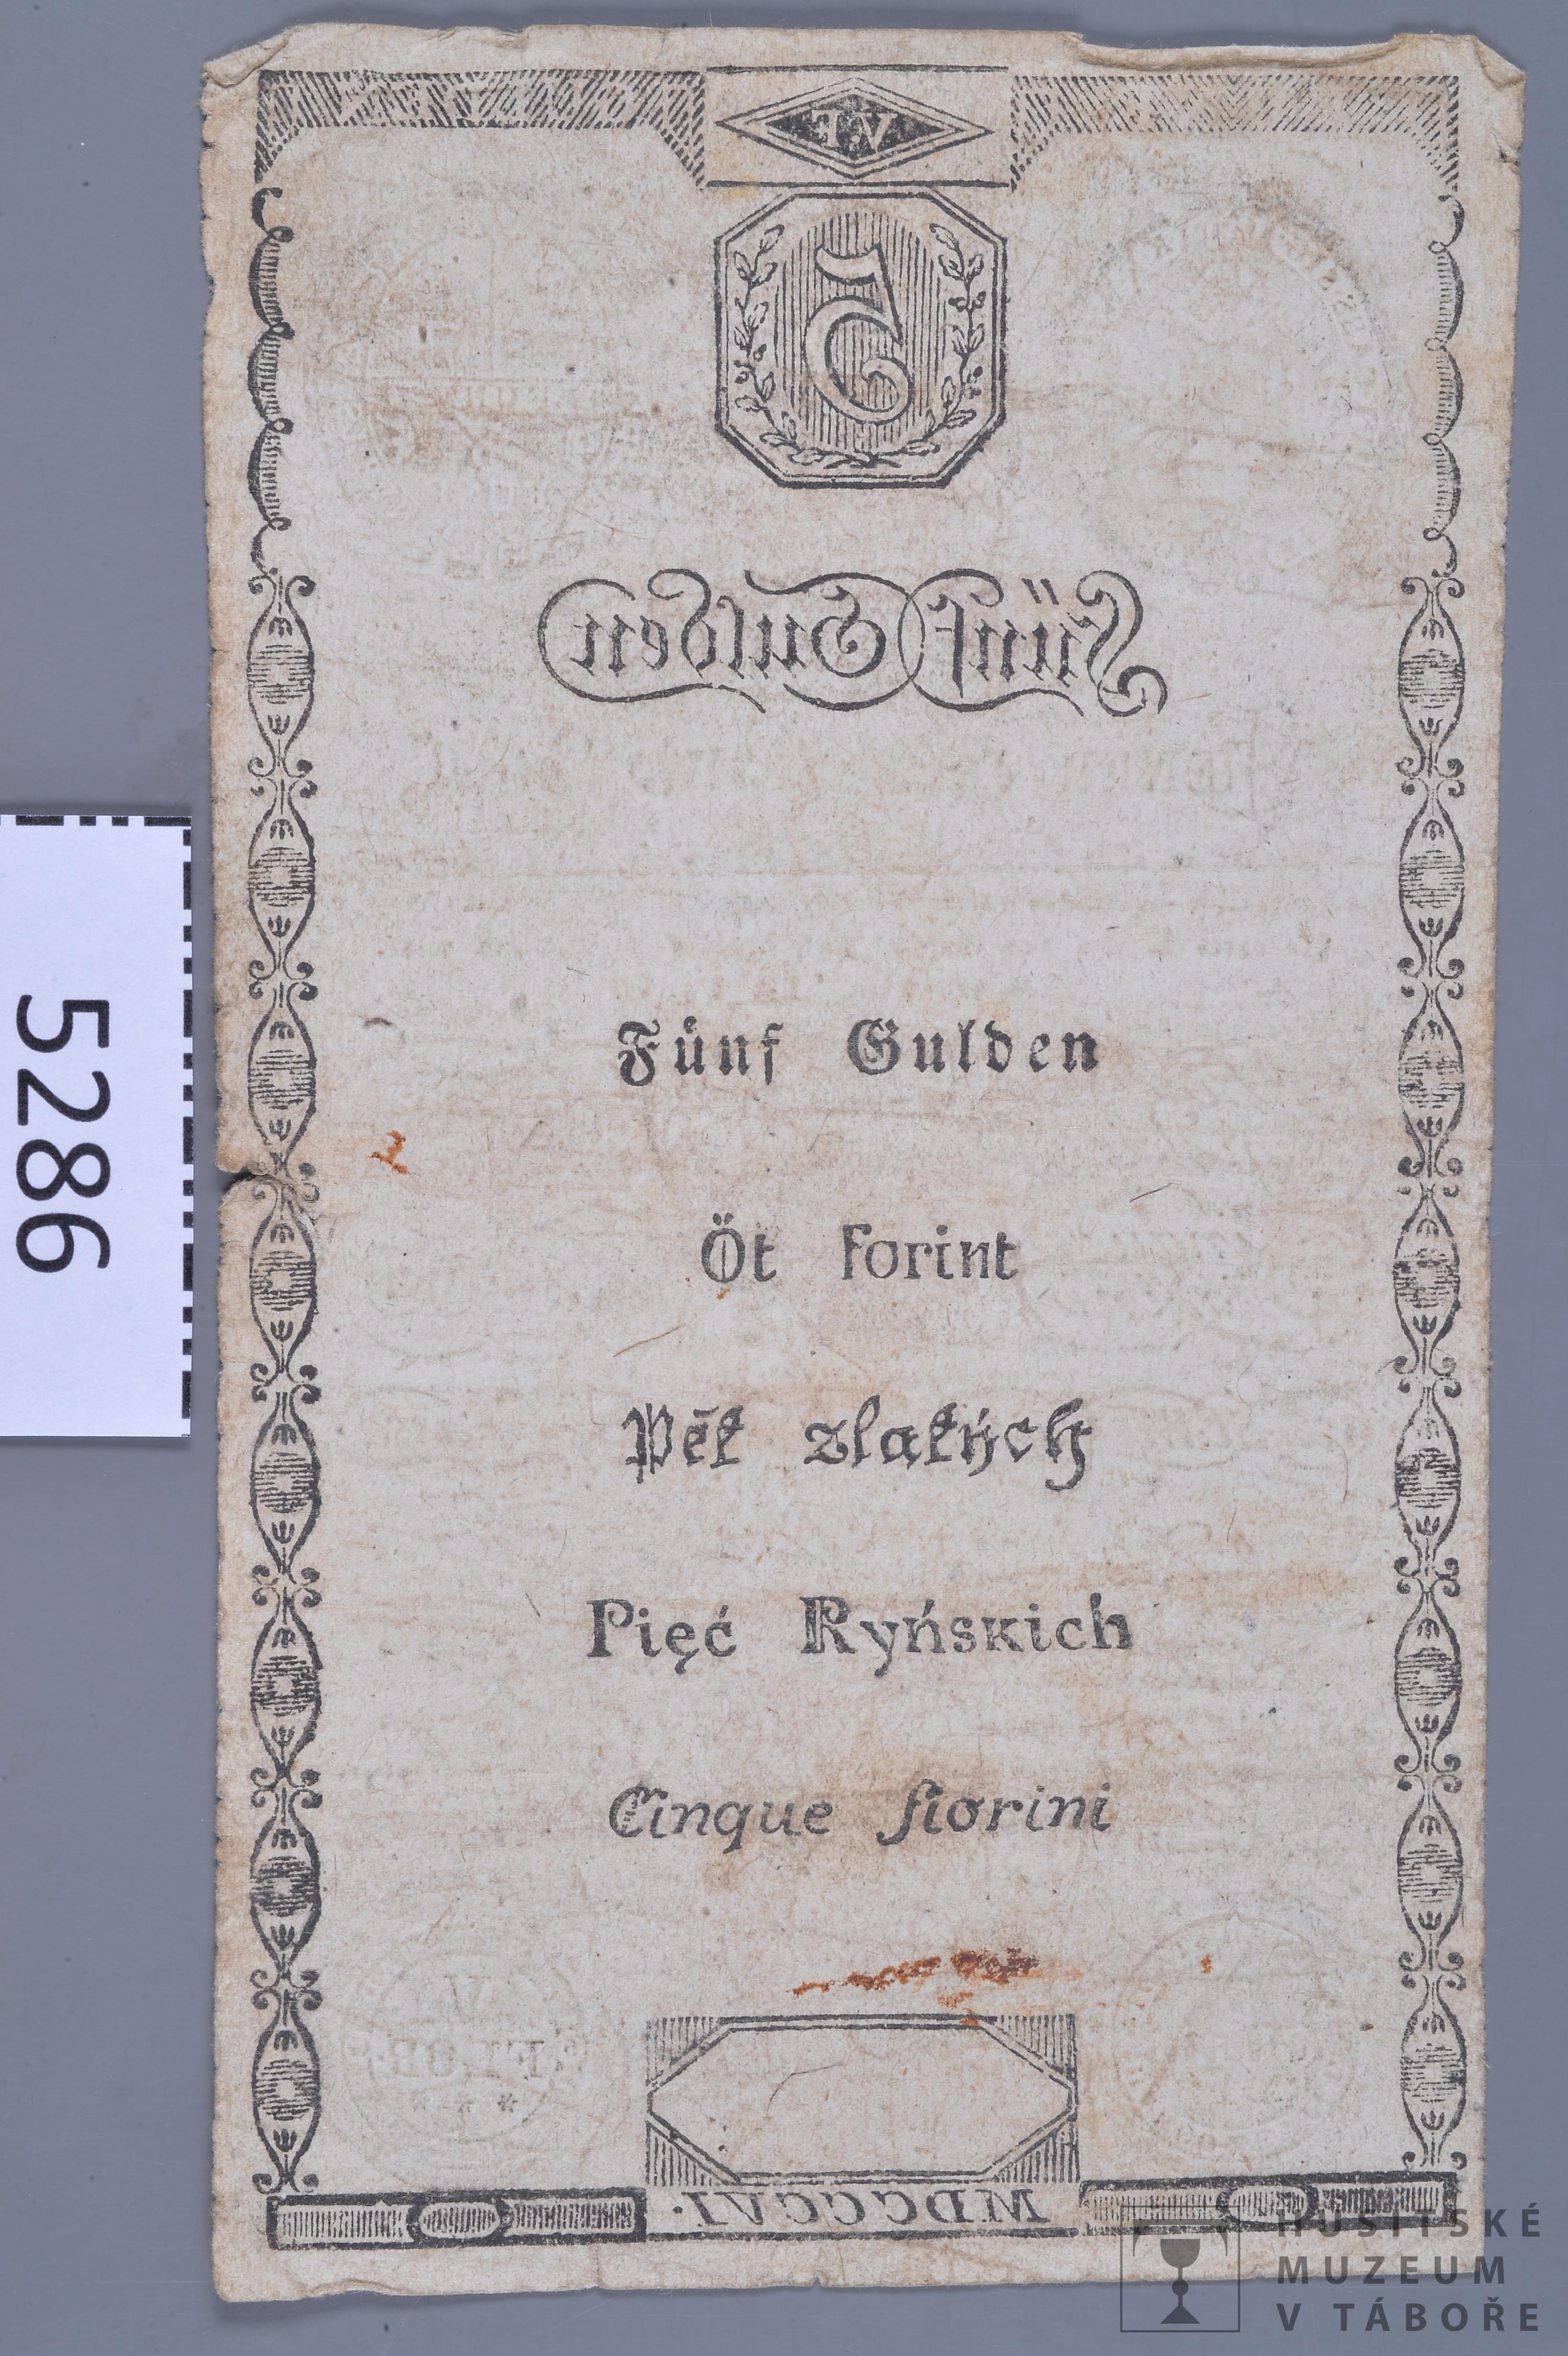 F.V
5
Fünf Gulden
Fünf Gulden
Öt forint
Pět zlatých
Pięć Ryńskich
Cinque fiorini
V
FLOR
MDCCCVI.
5286
HUSITSKÉ
MUZEUM
V TÁBOŘE